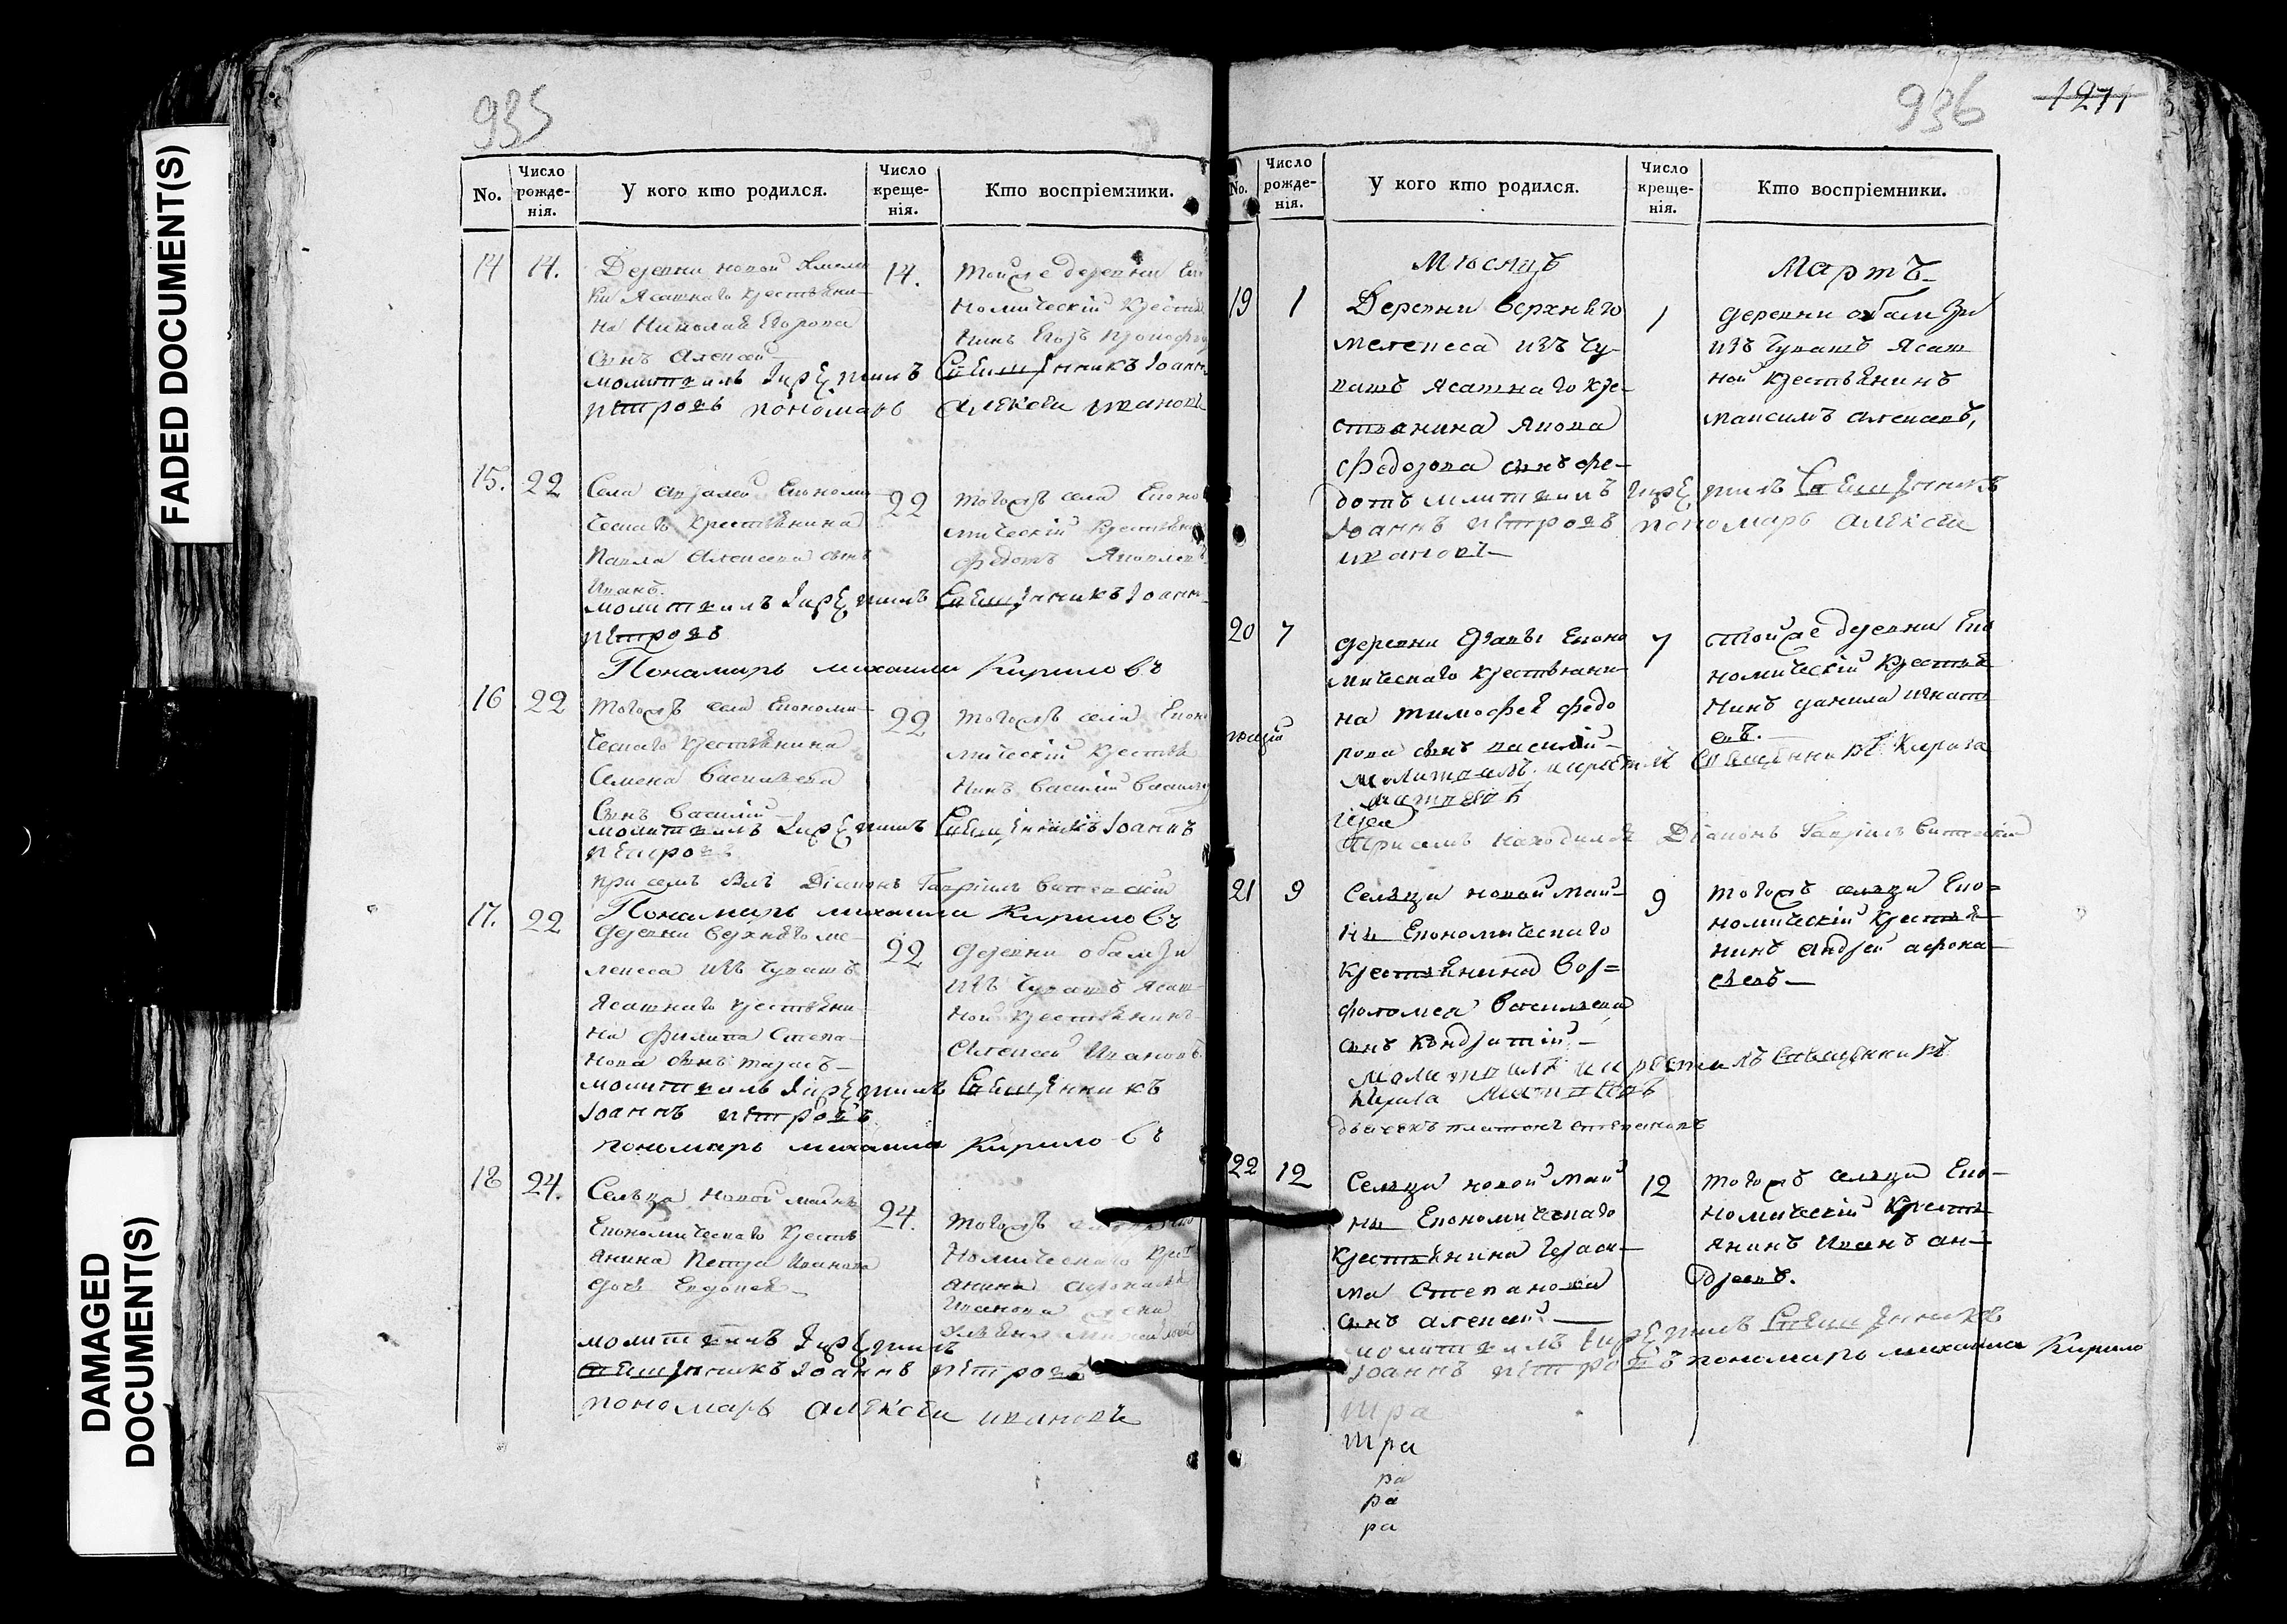 FADED DOCUMENT(S)
DAMAGED
DOCUMENT(S)
935
No.
Число
рожде-
нія.
У кого кто родился.
Число
креще-
нія.
Кто воспріемники.
14
14.
Деревни новой
ки Ясашнаго крестьяни-
на Николая Егорова
сынъ Алексей
молитвилъ и крестилъ Священникъ Іоаннъ
петровъ пономарь алексеи ивановъ
14.
тойже деревни Еко
номическій крестья
нинъ Егоръ
15.
22
Села Економи
ческаго крестьянина
Павла Алексеева сынъ
Иванъ.
молитвилъ и крестилъ Священникъ Іоаннъ
петровъ
Пономарь михаила Кириловъ
22
тогожъ села Эконо
мическій крестьяни
Федотъ Яковлевъ
16
22
тогожъ села Економи-
ческаго крестьянина
Семена Васильева
Сынъ Василій
молитвилъ и крестилъ Священникъ Іоаннъ
петровъ
при семъ былъ Діаконъ Гавріилъ
Пономарь михаила Кириловъ
22
тогожъ села Еконо
мическій крестья
нинъ Василій
17.
22
деревни верхнего ме-
лекеса изъ Чувашъ
Ясашнаго крестьяни-
на Филипа Степа-
нова сынъ тарасъ
молитвилъ и крестилъ Священникъ
Іоаннъ петровъ
пономарь михаила Кириловъ
22
деревни
изъ Чувашъ Ясаш-
ной крестьянинъ
Алексей Ивановъ.
18
24.
Сельца новой майны
Економическаго крестья
янина Петра Иванова
дочь Евдокея
молитвилъ и крестилъ
священникъ Іоаннъ петровъ
пономарь алексеи ивановъ
24.
тогожъ
номическаго крест
янина
Иванова жена
936
1271
No.
Число
рожде-
нія.
У кого кто родился.
Число
креще-
нія.
Кто воспріемники.
Мюсяцъ
Мартъ
19
1
Деревни верхнего
мелекеса изъ чу-
вашъ Ясашнаго кре-
стьянина Якова
Федорова сынъ Фе-
дотъ молитвилъ и крестилъ Священникъ
Іоаннъ петровъ пономарь алексеи
ивановъ
1
деревни
изъ Чувашъ Ясаш
ной крестьянинъ
максимъ алексеевъ,
20
7
деревни Еконо
мическаго крестьяни-
на тимофея федо
рова сынъ василій
молитвилъ и крестилъ Священникъ Кирила
Присемъ находился Діаконъ Гавріилъ
7
тойже деревни Еко
номическій крестья
нинъ данила игнать
евъ.
21
9
Сельца новой май-
ны Економическаго
крестьянина Вар=
фоломея Васильева
сынъ Кондратій
молитвилъ и крестилъ священникъ
Кирила
дьячекъ платонъ степановъ
9
тогожъ сельца Еко=
номическій крестья-
нинъ Андрей афона-
сьевъ
22
12
Сельца новой май
ны Економическаго
крестьянина Гераси-
ма Степанова
сынъ алексей
молитвилъ и крестилъ Священникъ
Іоаннъ петровъ пономарь михаила Кирило
12
тогожъ сельца Еко-
номическій крестья
янинъ Иванъ ан-
дреевъ.
тра
тра
ра
ра
ра